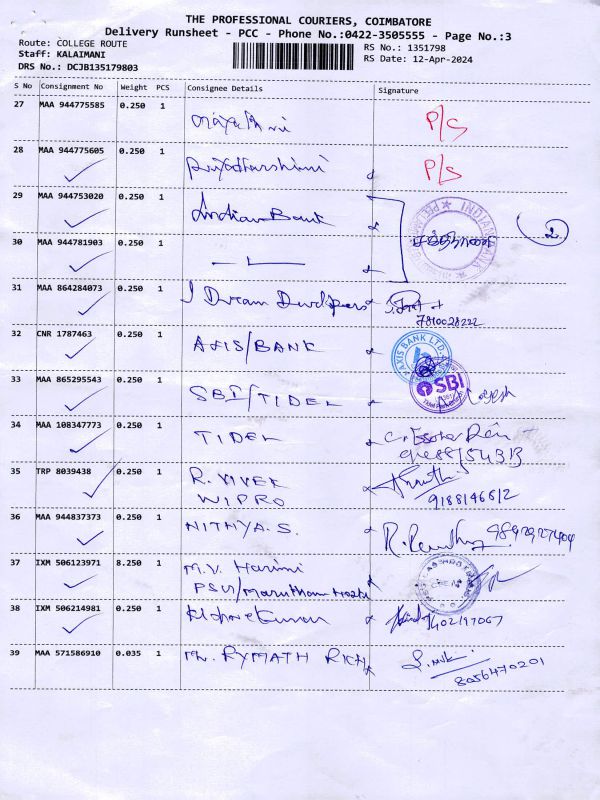 THE PROFESSIONAL COURIERS, COIMBATORE
Delivery Runsheet - PCC - Phone No.:0422-3505555 - Page No.:3
Route: COLLEGE ROUTE
RS No.: 1351798
Staff: KALAIMANI
RS Date: 12-Apr-2024
DRS No.: DCJB135179803
S No Consignment No Weight PCS Consignee Details Signature
27 MAA 944775585 0.250 1 P/S
28 MAA 944775605 0.250 1 Priyadharshini P/S
29 MAA 944753020 0.250 1 Indian Bank
30 MAA 944781903 0.250 1 2
31 MAA 864284073 0.250 1 I Dream Developers
7810028222
32 CNR 1787463 0.250 1 AXIS/BANK AXIS BANK LTD.
33 MAA 865295543 0.250 1 SBI/TIDEL SBI
34 MAA 108347773 0.250 1 TIDEL
35 TRP 8039438 0.250 1 R. VIVEK
WIPRO
36 MAA 944837373 0.250 1 NITHYA.S.
37 IXM 506123971 8.250 1 M.V. Harini
PSG/
38 IXM 506214981 0.250 1 Kishore Kumar
39 MAA 571586910 0.035 1 Mr. RYMATH
8056470201